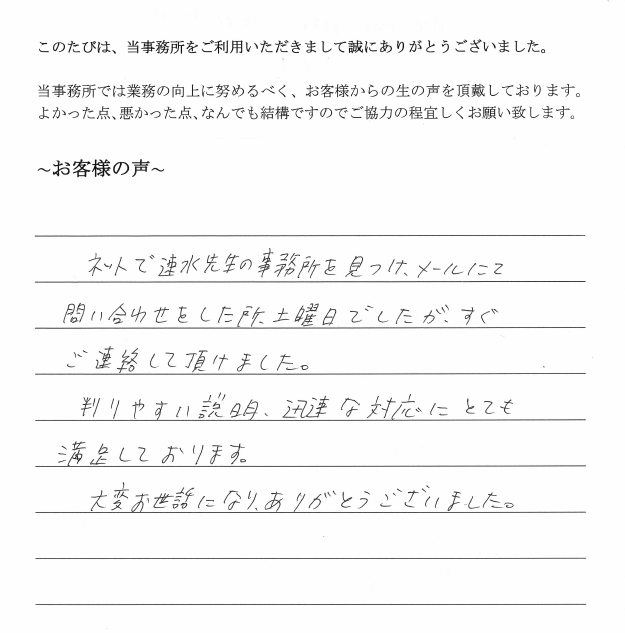 このたびは、当事務所をご利用いただきまして誠にありがとうございました。
当事務所では業務の向上に努めるべく、お客様からの生の声を頂戴しております。
よかった点、悪かった点、なんでも結構ですのでご協力の程宜しくお願い致します。
～お客様の声～
ネットで速水先生の事務所を見つけ、メールにて
問い合わせをした所、土曜日でしたが、すぐ
ご連絡して頂けました。
判りやすい説明、迅速な対応にとても
満足しております。
大変お世話になり、ありがとうございました。